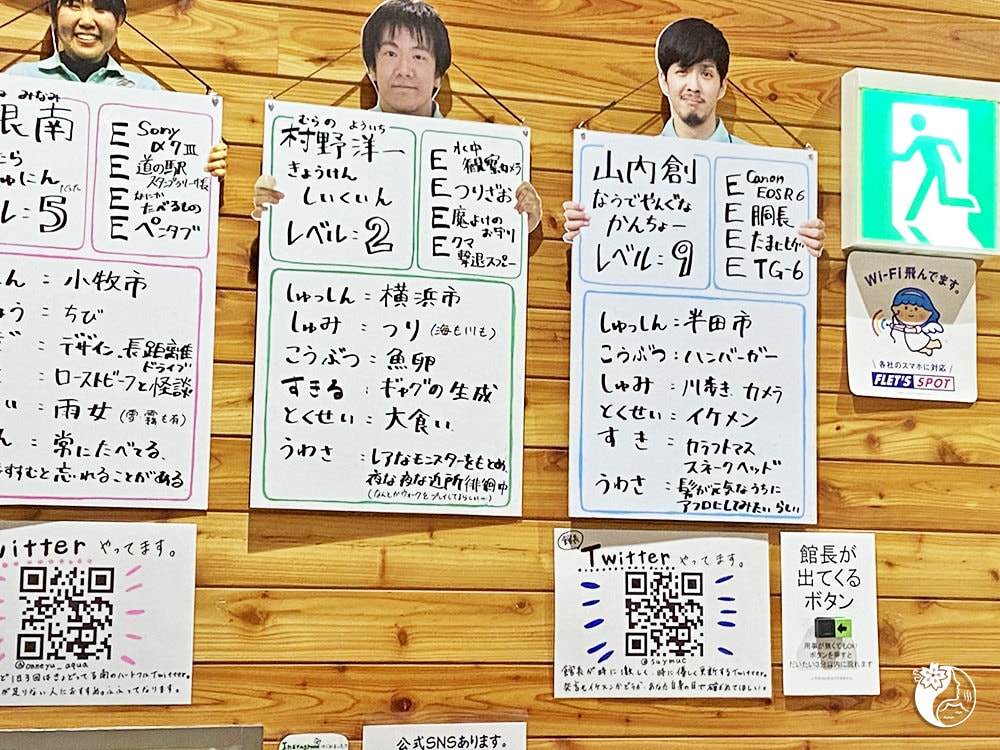 みなみ
根南
レベル：5
E Sony
α7Ⅲ
E 道の駅
スタンプラリー帳
E なにか
たべるもの
E ペンタブ
：小牧市
：ちび
：デザイン、長距離
ドライブ
：ローストビーフと怪談
：雨女（雪霧も有）
：常にたべてる、
すすむと忘れることがある
むらの よういち
村野洋一
きょうけん
しいくいん
レベル：2
E 水中
観察カメラ
E つりざお
E 魔よけの
お守り
E クマ
撃退スプレー
しゅっしん：横浜市
しゅみ：つり（海も川も）
こうぶつ：魚卵
すきる：ギャグの生成
とくせい：大食い
うわさ：レアなモンスターをもとめ、
夜な夜な近所徘徊中
（なんとかウォークをプレイしてるらしい…）
山内創
なうでやんぐな
かんちょー
レベル：9
E Canon
EOSR6
E 胴長
E たまにヒゲ
E TG-6
しゅっしん：半田市
こうぶつ：ハンバーガー
しゅみ：川歩き、カメラ
とくせい：イケメン
すき：カラフトマス
スネークヘッド
うわさ：髪が元気なうちに
アフロにしてみたいらしい
Wi-Fi飛んでます。
各社のスマホに対応
FLET'S SPOT
witter やってます。
@onneyu_aqua
館長
Twitter やってます。
@suymuc
館長が時に激しく、時に優しく更新するTwitter。
発言もイケメンかどうか、あなた自身の目で確かめてほしい。
館長が
出てくる
ボタン
用事が無くてもOK!
ボタンを押すと
だいたい3分以内に現れます
Instagram
公式SNSあります。